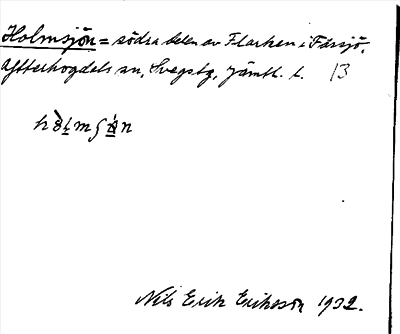 Holmsjön = södra delen av Flarken i Fåssjö,
Ytterhogdals sn, Svegs tg, Jämtl. l. 13
Nils Erik Eriksson 1932.